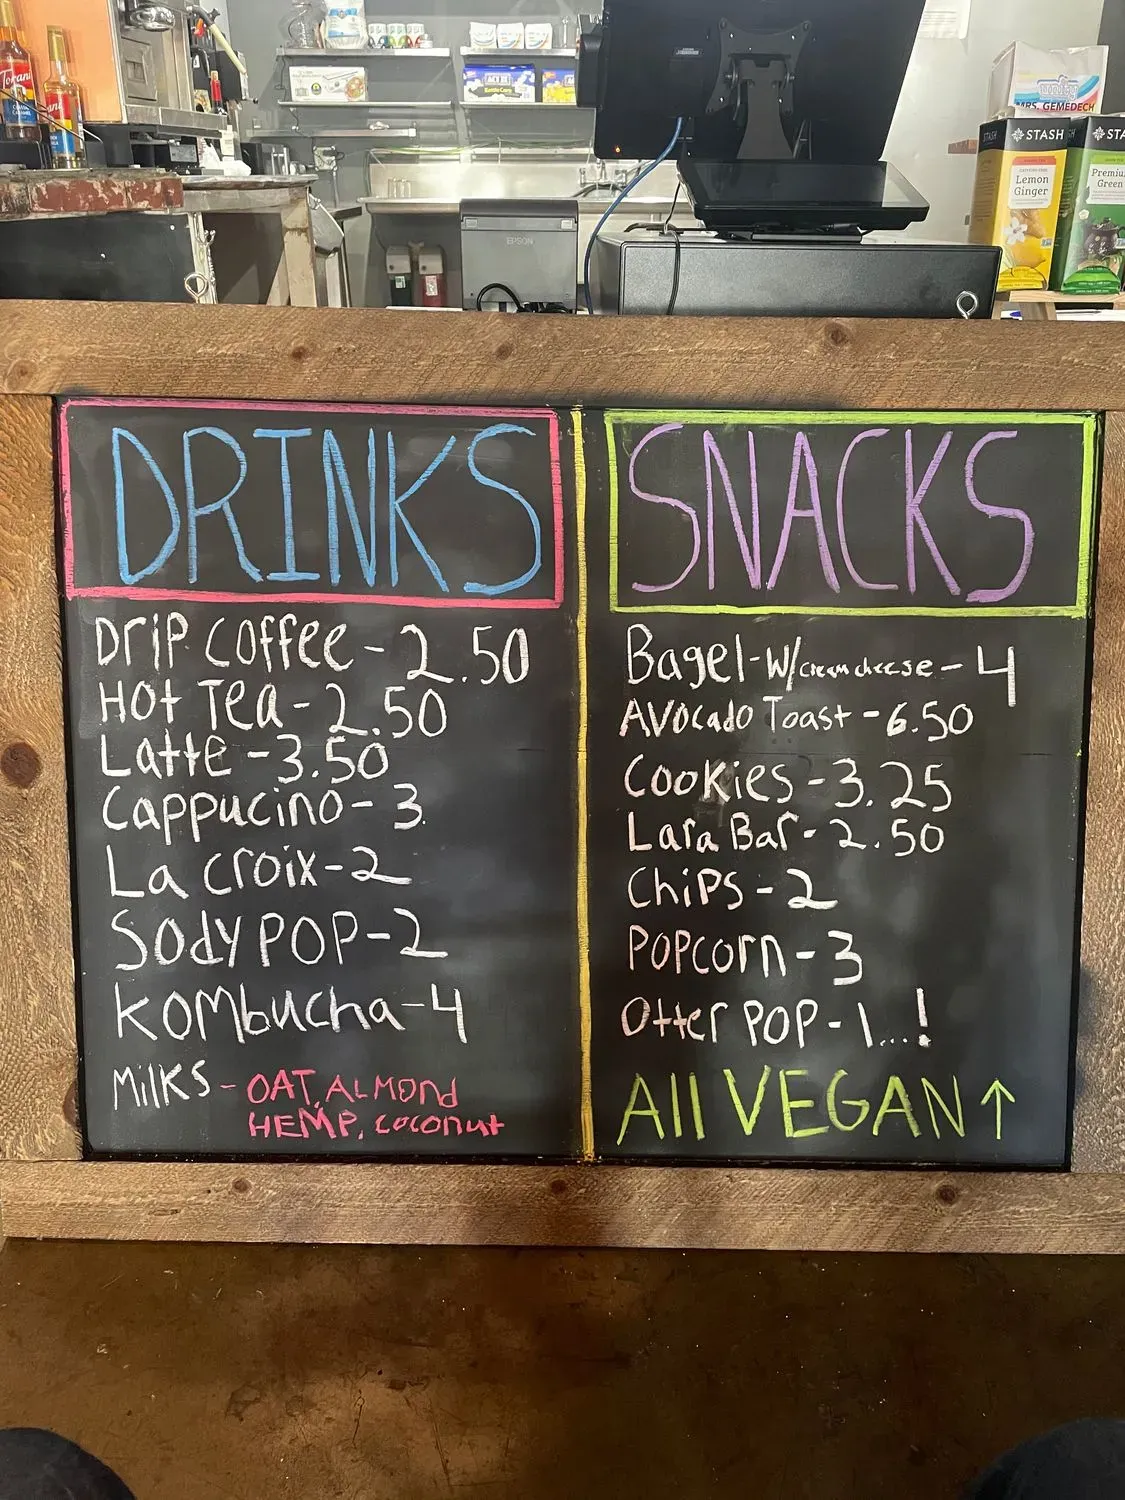 Torani
ACT II
Kettle Corn
EPSON
unity
MRS. GEMEDECH
STASH
Lemon
Ginger
STA
Premiu
Green
DRINKS
Drip Coffee - 2.50
Hot Tea - 2.50
Latte - 3.50
Cappucino - 3
La Croix - 2
Sody POP - 2
Kombucha - 4
Milks - OAT, ALMOnd
HEMP, coconut
SNACKS
Bagel - w/ cream cheese - 4
Avocado Toast - 6.50
Cookies - 3.25
Lara Bar - 2.50
Chips - 2
Popcorn - 3
Otter POP - 1...!
All VEGAN ↑